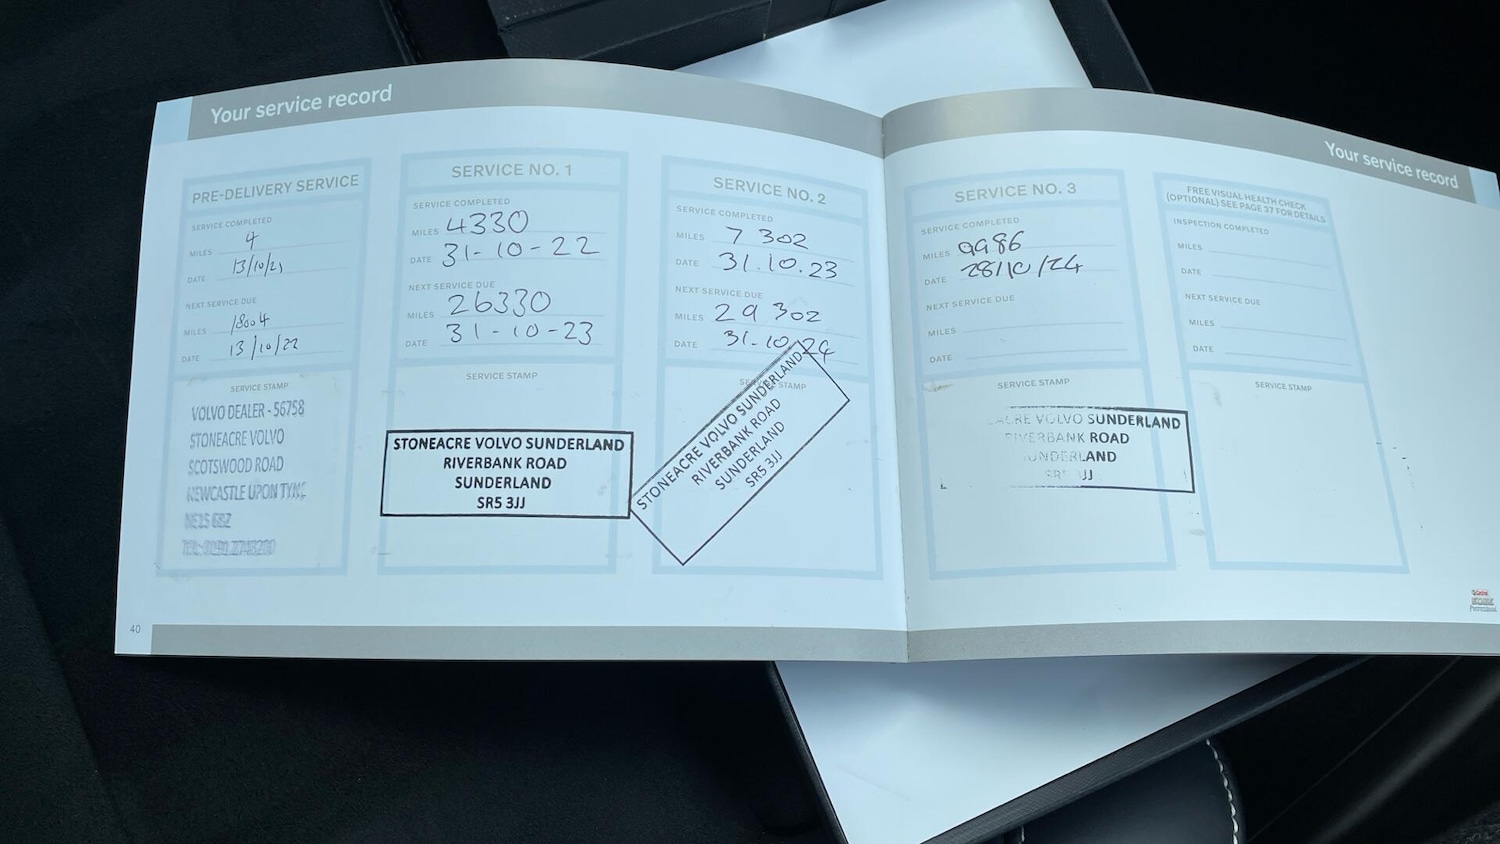 Your service record
PRE-DELIVERY SERVICE
SERVICE COMPLETED
MILES 4
DATE 13/10/21
NEXT SERVICE DUE
MILES 18004
DATE 13/10/22
SERVICE STAMP
VOLVO DEALER - 56758
STONEACRE VOLVO
SCOTSWOOD ROAD
NEWCASTLE UPON TYNE
SERVICE NO. 1
SERVICE COMPLETED
MILES 4330
DATE 31-10-22
NEXT SERVICE DUE
MILES 26330
DATE 31-10-23
SERVICE STAMP
STONEACRE VOLVO SUNDERLAND
RIVERBANK ROAD
SUNDERLAND
SR5 3JJ
SERVICE NO. 2
SERVICE COMPLETED
MILES 7302
DATE 31.10.23
NEXT SERVICE DUE
MILES 29302
DATE 31.10.24
SERVICE STAMP
STONEACRE VOLVO SUNDERLAND
RIVERBANK ROAD
SUNDERLAND
SR5 3JJ
40
Your service record
SERVICE NO. 3
SERVICE COMPLETED
MILES 9986
DATE 28/10/24
NEXT SERVICE DUE
MILES
DATE
SERVICE STAMP
ACRE VOLVO SUNDERLAND
RIVERBANK ROAD
UNDERLAND
JJ
FREE VISUAL HEALTH CHECK
(OPTIONAL) SEE PAGE 37 FOR DETAILS
INSPECTION COMPLETED
MILES
DATE
NEXT SERVICE DUE
MILES
DATE
SERVICE STAMP
Castrol
Professional